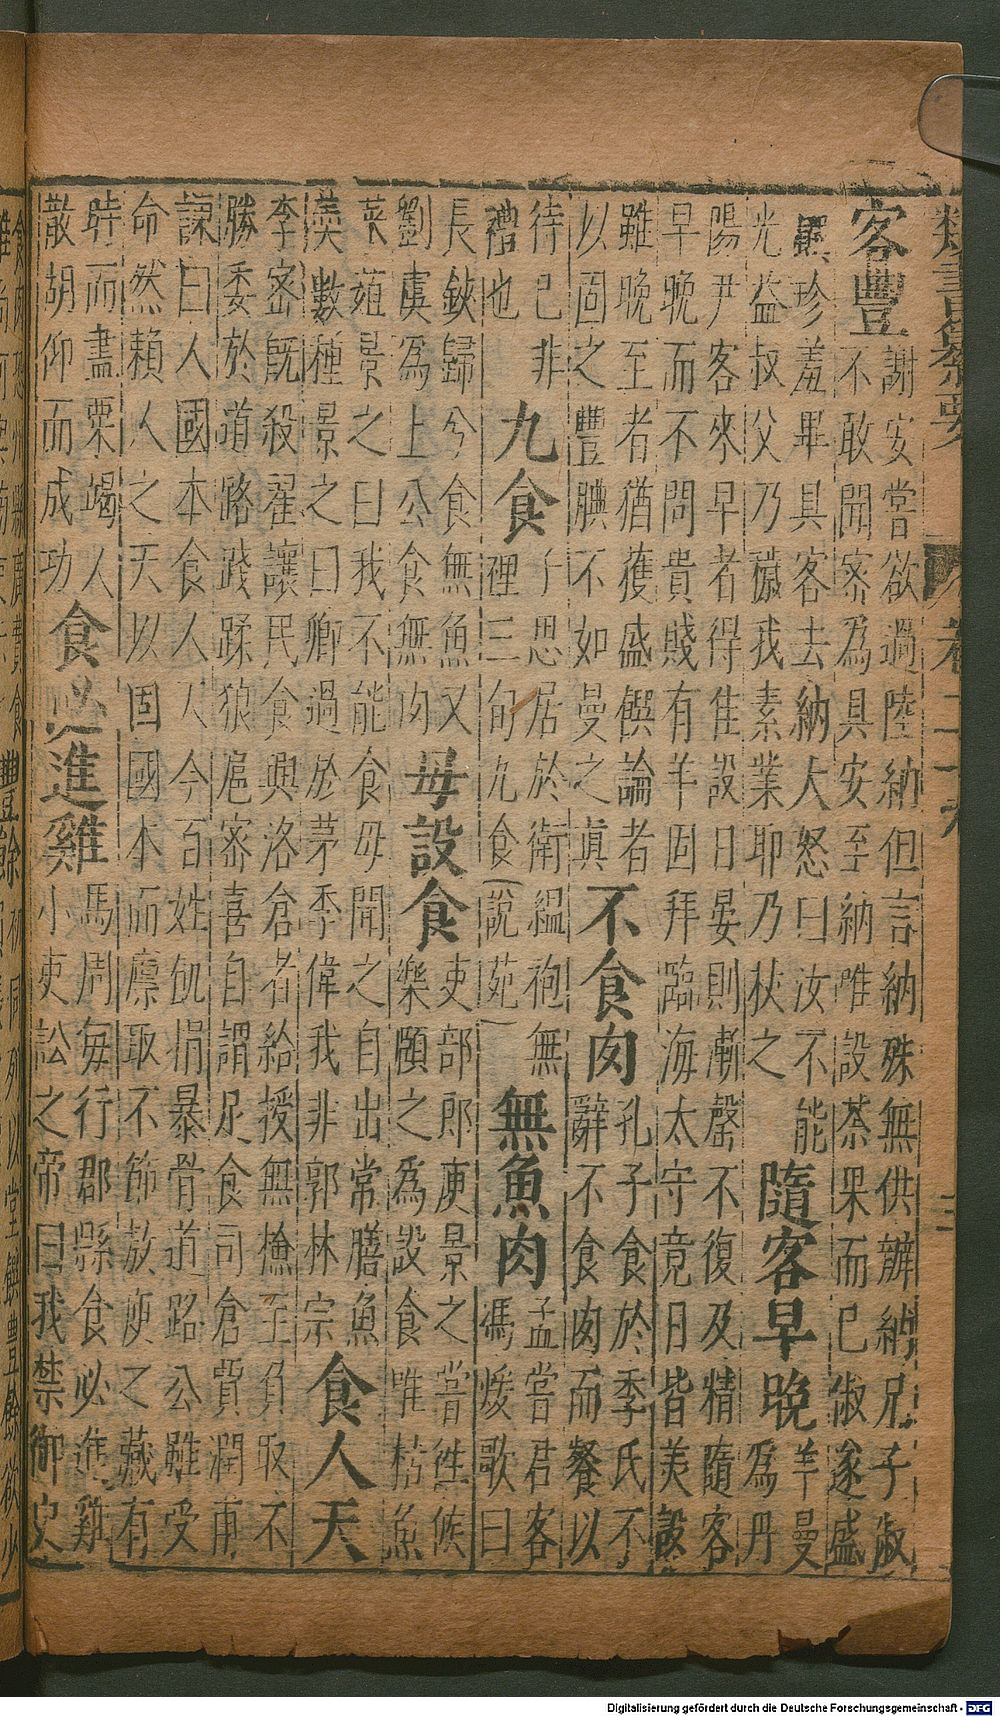 類書纂要
客豐
謝安嘗欲過陸納但言納殊無供辦納兄子俶
不敢聞密為具安至納唯設茶果而已俶遂盛
饌珍羞畢具客去納大怒曰汝不能
光益叔父乃穢我素業耶乃杖之
隨客早晚
羊曼
為丹
陽尹客來早者得隹設日晏則漸罄不復及精隨客
早晚而不問貴賤有羊固拜臨海太守竟日皆美設
雖晚至者猶獲盛饌論者
以固之豐腆不如曼之真
不食肉
孔子食於季氏不
辭不食肉而餐以
待己非
禮也
九食
子思居於衛縕袍無
裡三旬九食(說苑)
無魚肉
孟嘗君客
馮煖歌曰
長鋏歸兮食無魚又
劉虞為上公食無肉
毋設食
吏部郎庾景之嘗徃候
樂頤之為設食唯枯魚
菜葅景之曰我不能食母聞之自出常膳魚
羮數種景之曰卿過於茅季偉我非郭林宗
食人天
李密既殺翟讓民食興洛倉者給授無撿至負取不
勝委於道路踐蹂狼扈密喜自謂足食司倉賈潤甫
諫曰人國本食人人今百姓飢捐暴骨道路公雖受
命然賴人之天以固國本而廪取不節敖庾之藏有
時而盡粟竭人
散胡仰而成功
食必進雞
馬周每行郡縣食必進雞
小吏訟之帝曰我禁御史
Digitalisierung gefördert durch die Deutsche Forschungsgemeinschaft - DFG